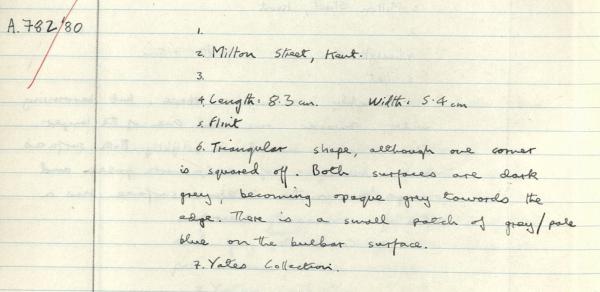 A.782/'80
1.
2. Milton Street, Kent.
3.
4. Length: 8.3 cm. Width: 5.4 cm
5. Flint
6. Triangular shape, although one corner
is squared off. Both surfaces are dark
grey, becoming opaque grey towards the
edge. There is a small patch of grey/pale
blue on the bulbar surface.
7. Yates Collection.